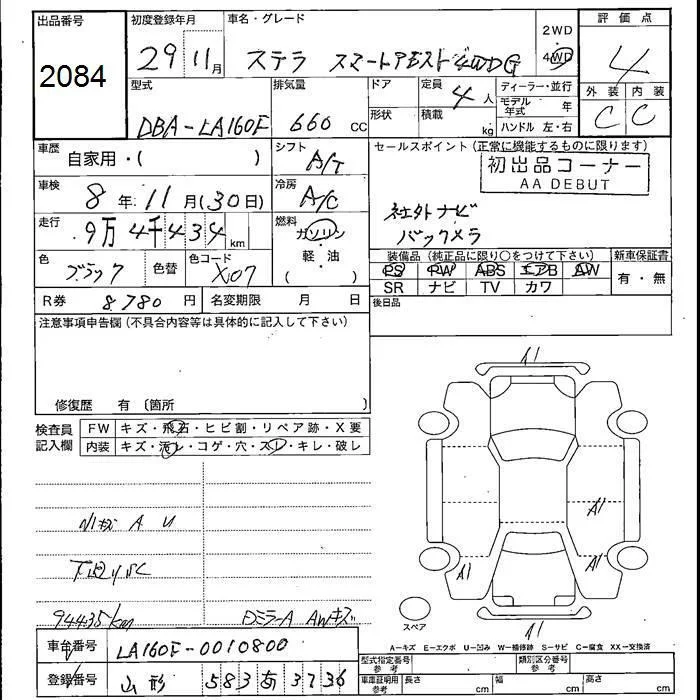 出品番号
2084
初度登録年月
29 11月
車名・グレード
ステラ スマートアシスト 4WD G
2WD
4WD
評価点
4
外装 内装
C C
型式
DBA-LA160F
排気量
660 cc
ドア
形状
定員
4 人
積載
kg
ディーラー・並行
モデル年式 年
ハンドル 左・右
車歴
自家用・( )
シフト
A/T
セールスポイント (正常に機能するものに限ります)
初出品コーナー
AA DEBUT
社外ナビ
バックカメラ
車検
8年 11月(30日)
冷房
A/C
走行
9万4千434 km
燃料
ガソリン
軽・油
( )
色
ブラック
色替
色コード
X07
装備品 (純正品に限り○をつけて下さい)
PS PW ABS エアB AW
SR ナビ TV カワ
新車保証書
有・無
R券 8,780 円
名変期限 月 日
後日品
注意事項申告欄 (不具合内容等は具体的に記入して下さい)
修復歴 有 〔箇所 〕
検査員記入欄
FW キズ・飛石・ヒビ割・リペア跡・X要
内装 キズ・汚レ・コゲ・穴・スレ・キレ・破レ
小キズ A U
下廻りSC
94435km
DミラーA AWキズ
A1
A1
A1
A1
A1
A1
スペア
A=キズ E=エクボ U=凹み W=補修跡 S=サビ C=腐食 XX=交換済
車台番号
LA160F-0010800
登録番号
山形 583 あ 3736
型式指定番号
参考
類別区分番号
参考
車庫証明用
参考
長さ cm
幅 cm
高さ cm